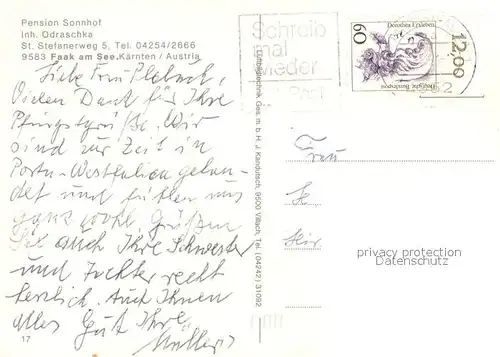 Pension Sonnhof
Inh. Odraschka
St. Stefanerweg 5, Tel. 04254/2666
9583 Faak am See. Kärnten / Austria
Liebe Frau
Vielen Dank für Ihre
Pfingstgrüße. Wir
sind zur Zeit in
Porta-Westfalica gelan-
det und fühlen uns
ganz wohl. Grüßen
Sie auch Ihre Schwester
und Tochter recht
herzlich. Auch Ihnen
alles Gute Ihre
Müllers
17
Luftbildtechnik, Ges. m. b. H. J. Kandutsch, 9500 Villach, Tel. (04242) 31092
Schreib
mal
wieder
Post
Dorothea Erxleben
60
Deutsche Bundespost
12,00
Frau
privacy protection
Datenschutz